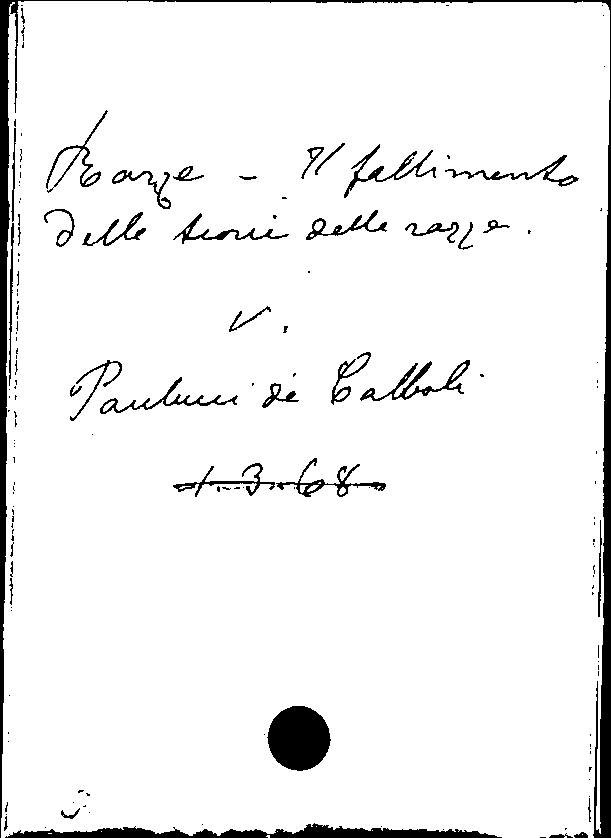 Razze - Il fallimento
delle teorie delle razze.
V.
Paulucci de Calboli
1.3.68